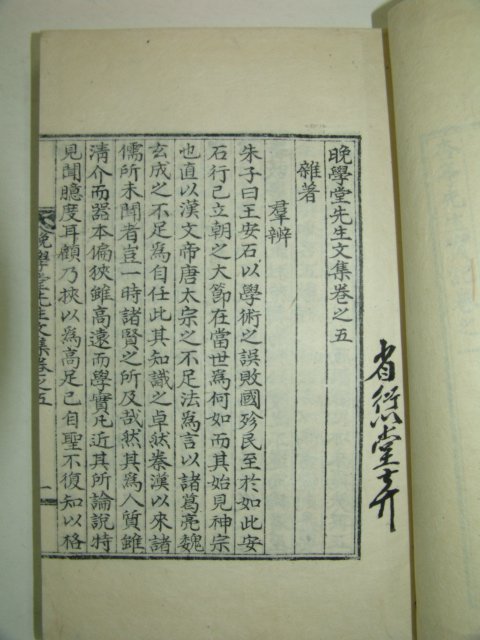 晚學堂先生文集卷之五
雜著
羣辨
朱子曰王安石以學術之誤敗國殄民至於如此安
石行己立朝之大節在當世爲何如而其始見神宗
也直以漢文帝唐太宗之不足法爲言以諸葛亮魏
玄成之不足爲自任此其知識之卓然秦漢以來諸
儒所未聞者豈一時諸賢之所及哉然其爲人質雖
清介而器本偏狹雖高遠而學實凡近其所論說特
見聞臆度耳顧乃挾以爲高足己自聖不復知以格
晚學堂先生文集卷之五
一
省衍堂弆